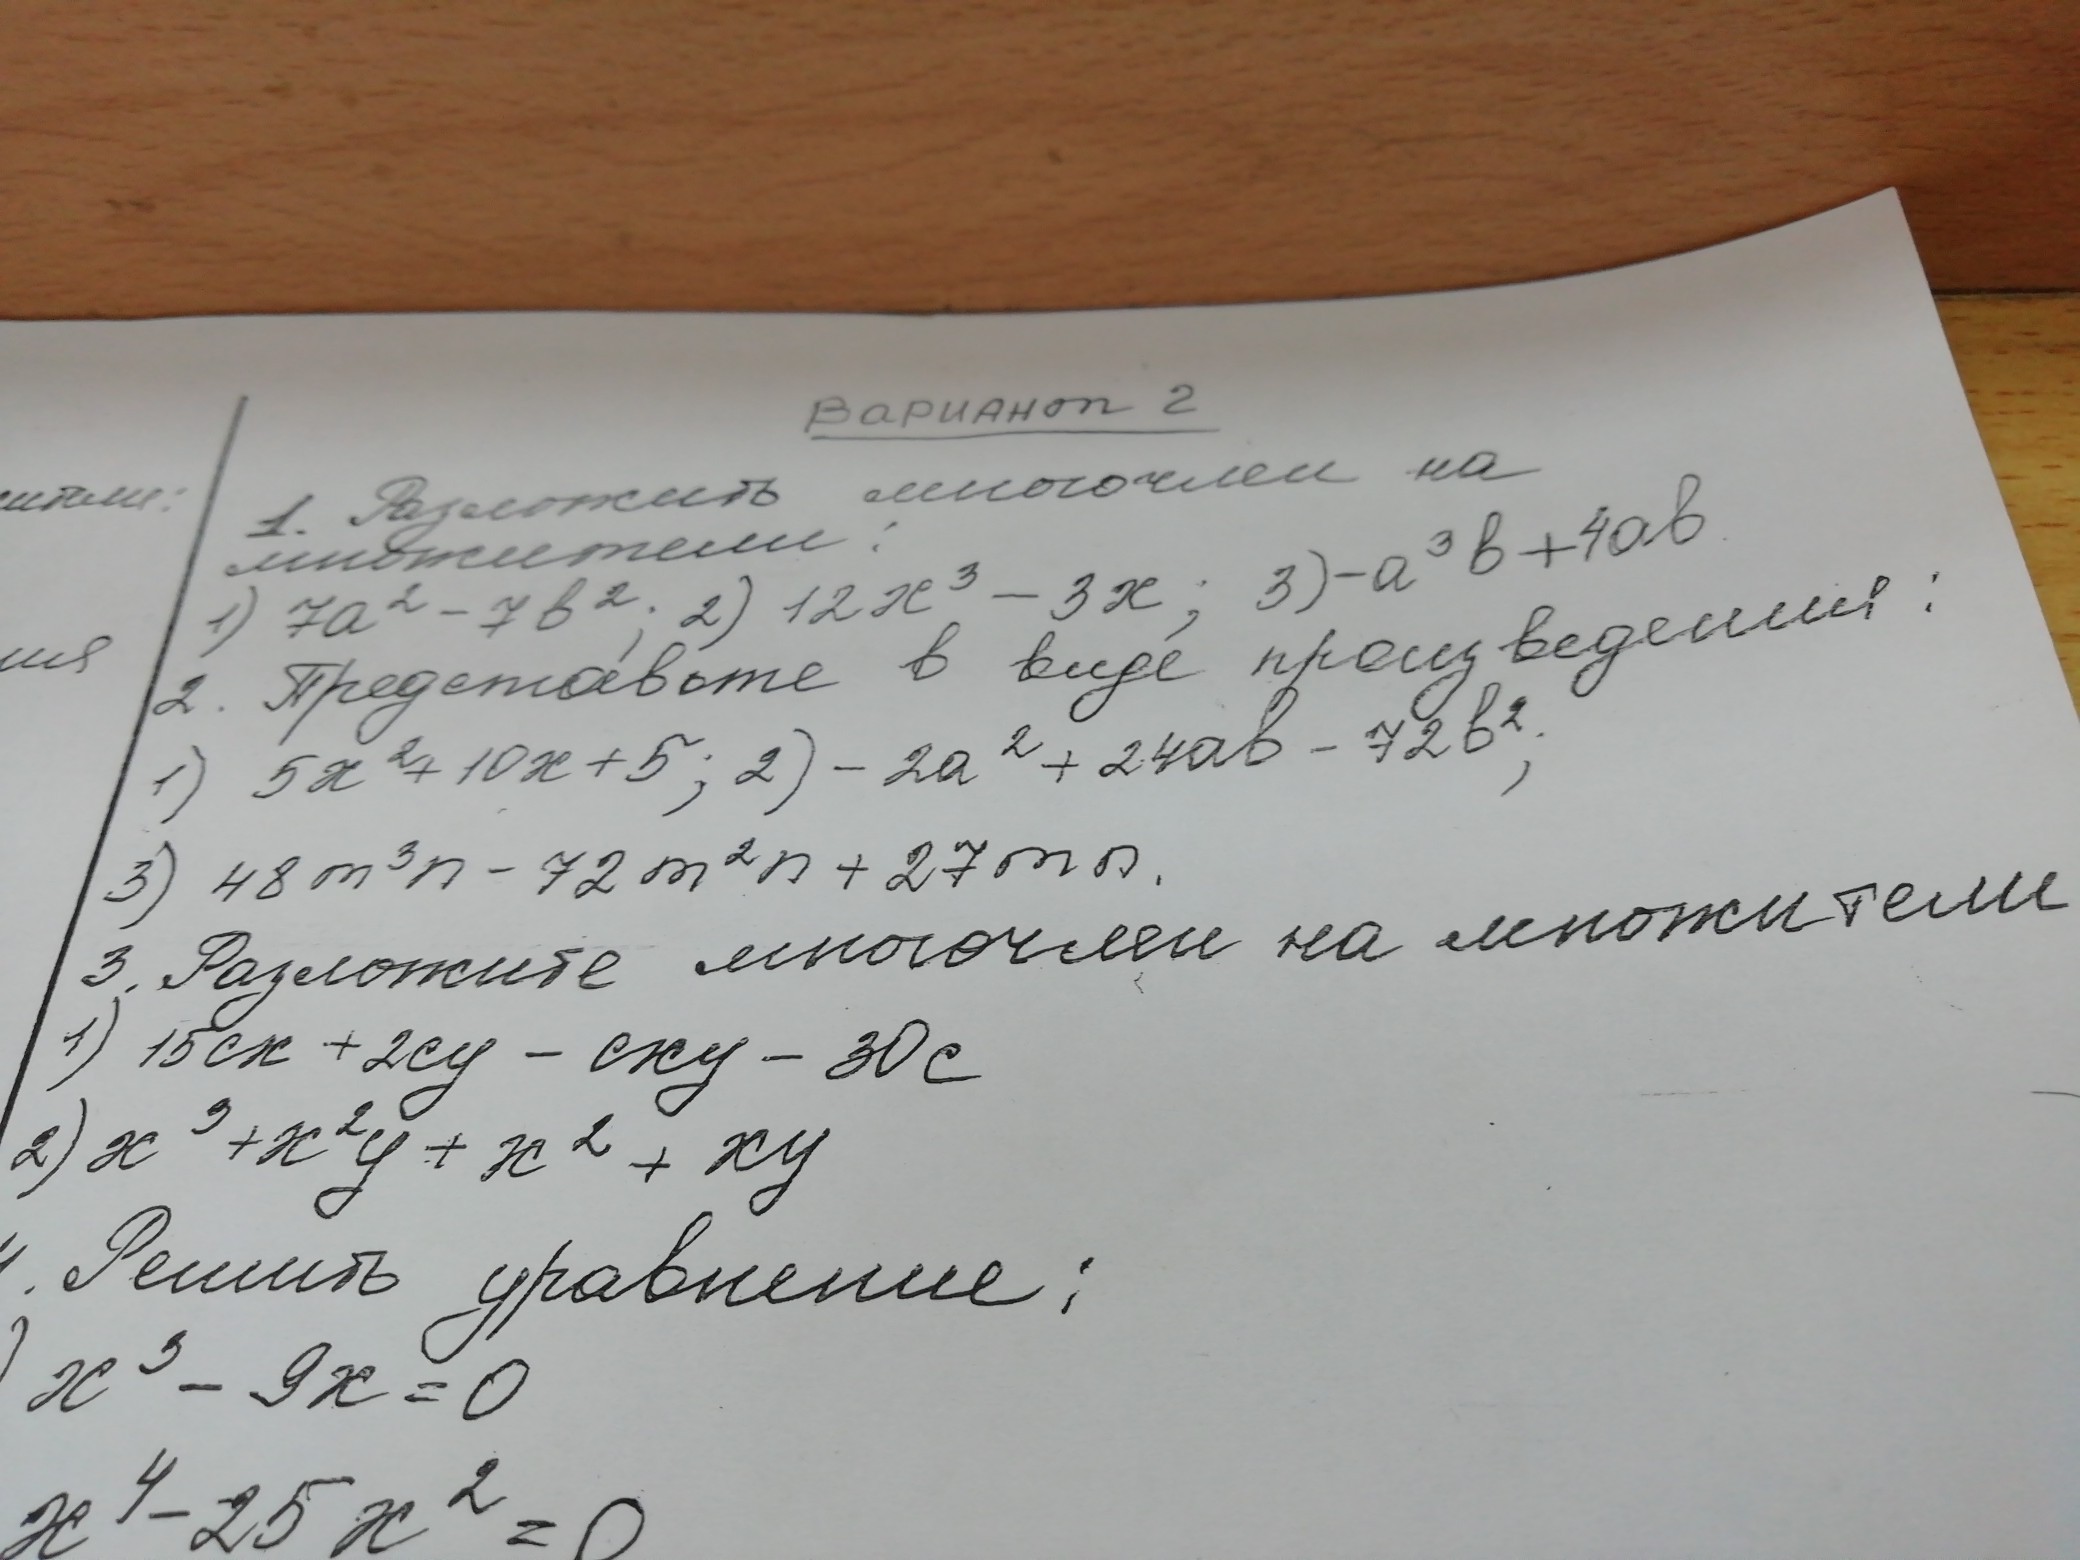 Вариант 2
1. Разложить многочлен на
множители:
1) 7a² - 7b²; 2) 12x³ - 3x; 3) -a³b + 4ab.
2. Представьте в виде произведения:
1) 5x² + 10x + 5; 2) - 2a² + 24ab - 72b²;
3) 48m³n - 72m²n + 27mn.
3. Разложите многочлен на множители
1) 15cx + 2cy - cxy - 30c
2) x³ + x²y + x² + xy
4. Решить уравнение:
) x³ - 9x = 0
x⁴ - 25x² = 0